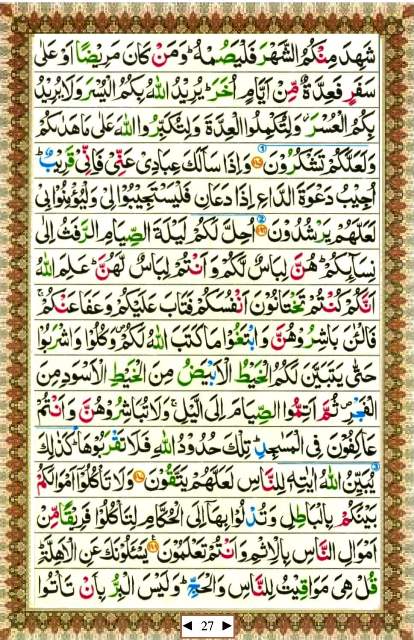 شَهِدَ مِنۡكُمُ الشَّهۡرَ فَلۡيَصُمۡهُ ؕ وَمَنۡ کَانَ مَرِيۡضًا اَوۡ عَلٰى
سَفَرٍ فَعِدَّةٌ مِّنۡ اَيَّامٍ اُخَرَ ؕ يُرِيۡدُ اللّٰهُ بِکُمُ الۡيُسۡرَ وَلَا يُرِيۡدُ
بِکُمُ الۡعُسۡرَ وَلِتُکۡمِلُوا الۡعِدَّةَ وَلِتُکَبِّرُوا اللّٰهَ عَلٰى مَا هَدٰٮكُمۡ
وَلَعَلَّکُمۡ تَشۡكُرُوۡنَ ۞ وَاِذَا سَاَلَـكَ عِبَادِىۡ عَنِّىۡ فَاِنِّىۡ قَرِيۡبٌ ؕ
اُجِيۡبُ دَعۡوَةَ الدَّاعِ اِذَا دَعَانِ فَلۡيَسۡتَجِيۡبُوۡا لِىۡ وَلۡيُؤۡمِنُوۡا بِىۡ
لَعَلَّهُمۡ يَرۡشُدُوۡنَ ۞ اُحِلَّ لَـکُمۡ لَيۡلَةَ الصِّيَامِ الرَّفَثُ اِلٰى
نِسَآٮِٕكُمۡ ؕ هُنَّ لِبَاسٌ لَّـكُمۡ وَاَنۡـتُمۡ لِبَاسٌ لَّهُنَّ ؕ عَلِمَ اللّٰهُ
اَنَّکُمۡ كُنۡتُمۡ تَخۡتَانُوۡنَ اَنۡفُسَکُمۡ فَتَابَ عَلَيۡكُمۡ وَعَفَا عَنۡكُمۡ ۚ
فَالۡـــٰٔنَ بَاشِرُوۡهُنَّ وَابۡتَغُوۡا مَا کَتَبَ اللّٰهُ لَـكُمۡ وَكُلُوۡا وَاشۡرَبُوۡا
حَتّٰى يَتَبَيَّنَ لَـكُمُ الۡخَـيۡطُ الۡاَبۡيَضُ مِنَ الۡخَـيۡطِ الۡاَسۡوَدِ مِنَ
الۡفَجۡرِ ثُمَّ اَتِمُّوا الصِّيَامَ اِلَى الَّيۡلِ ۚ وَلَا تُبَاشِرُوۡهُنَّ وَاَنۡـتُمۡ
عٰكِفُوۡنَ فِى الۡمَسٰجِدِ ؕ تِلۡكَ حُدُوۡدُ اللّٰهِ فَلَا تَقۡرَبُوۡهَا ؕ كَذٰلِكَ
يُبَيِّنُ اللّٰهُ اٰيٰتِهٖ لِلنَّاسِ لَعَلَّهُمۡ يَتَّقُوۡنَ ۞ وَلَا تَاۡكُلُوۡٓا اَمۡوَالَـكُمۡ
بَيۡنَكُمۡ بِالۡبَاطِلِ وَتُدۡلُوۡا بِهَآ اِلَى الۡحُـکَّامِ لِتَاۡکُلُوۡا فَرِيۡقًا مِّنۡ
اَمۡوَالِ النَّاسِ بِالۡاِثۡمِ وَاَنۡـتُمۡ تَعۡلَمُوۡنَ ۞ يَسۡــَٔلُوۡنَكَ عَنِ الۡاَهِلَّةِ ؕ
قُلۡ هِىَ مَوَاقِيۡتُ لِلنَّاسِ وَالۡحَجِّ ؕ وَلَيۡسَ الۡبِرُّ بِاَنۡ تَاۡتُوا
27